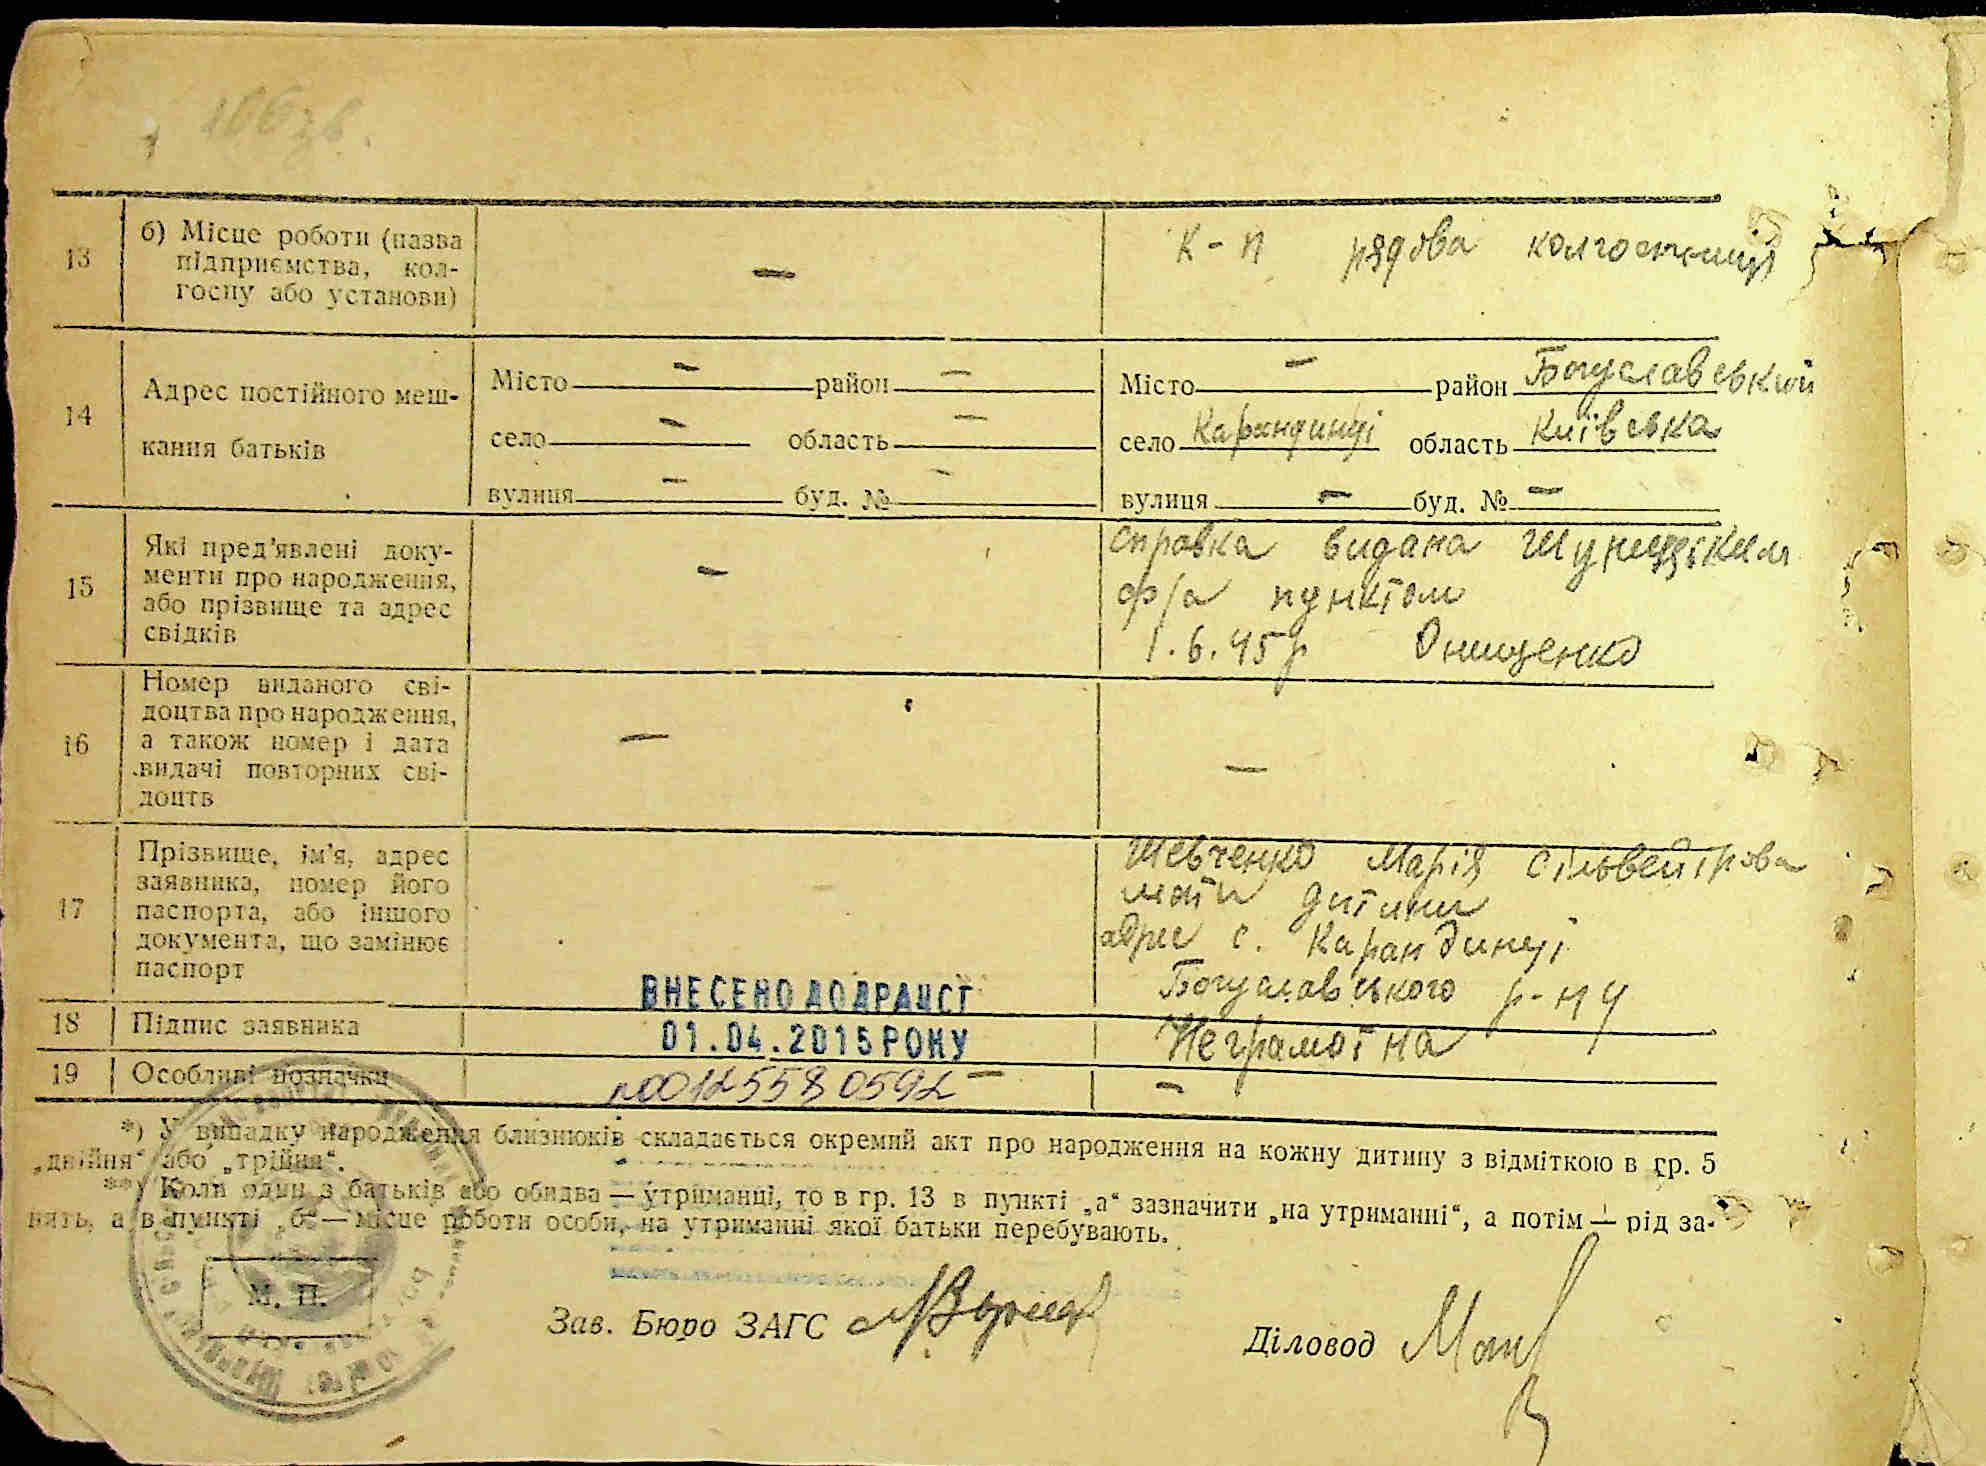 166 зв.
13
б) Місце роботи (назва
підприємства, кол-
госпу або установи)
—
К-п рядова колгоспниця
14
Адрес постійного меш-
кання батьків
Місто — район —
село — область —
вулиця — буд. № —
Місто — район Богуславський
село Карандинці область Київська
вулиця — буд. № —
15
Які пред'явлені доку-
менти про народження,
або прізвище та адрес
свідків
—
Справка видана
ф/а пунктом
1.6.45р Онищенко
16
Номер виданого сві-
доцтва про народження,
а також номер і дата
видачі повторних сві-
доцтв
—
—
17
Прізвище, ім'я, адрес
заявника, номер його
паспорта, або іншого
документа, що замінює
паспорт
Шевченко Марія Сільвейтрова
мати дитини
адрес с. Карандинці
Богуславського р-ну
ВНЕСЕНО ДО ДРАЦСГ
01.04.2015 РОКУ
18
Підпис заявника
Неграмотна
19
Особливі позначки
№00125580592 —
—
*) У випадку народження близнюків складається окремий акт про народження на кожну дитину з відміткою в гр. 5
„двійня“ або „трійня“.
**) Коли один з батьків або обидва — утриманці, то в гр. 13 в пункті „а“ зазначити „на утриманні“, а потім — рід за-
нять, а в пункті „б“ — місце роботи особи, на утриманні якої батьки перебувають.
М. П.
Зав. Бюро ЗАГС
Діловод